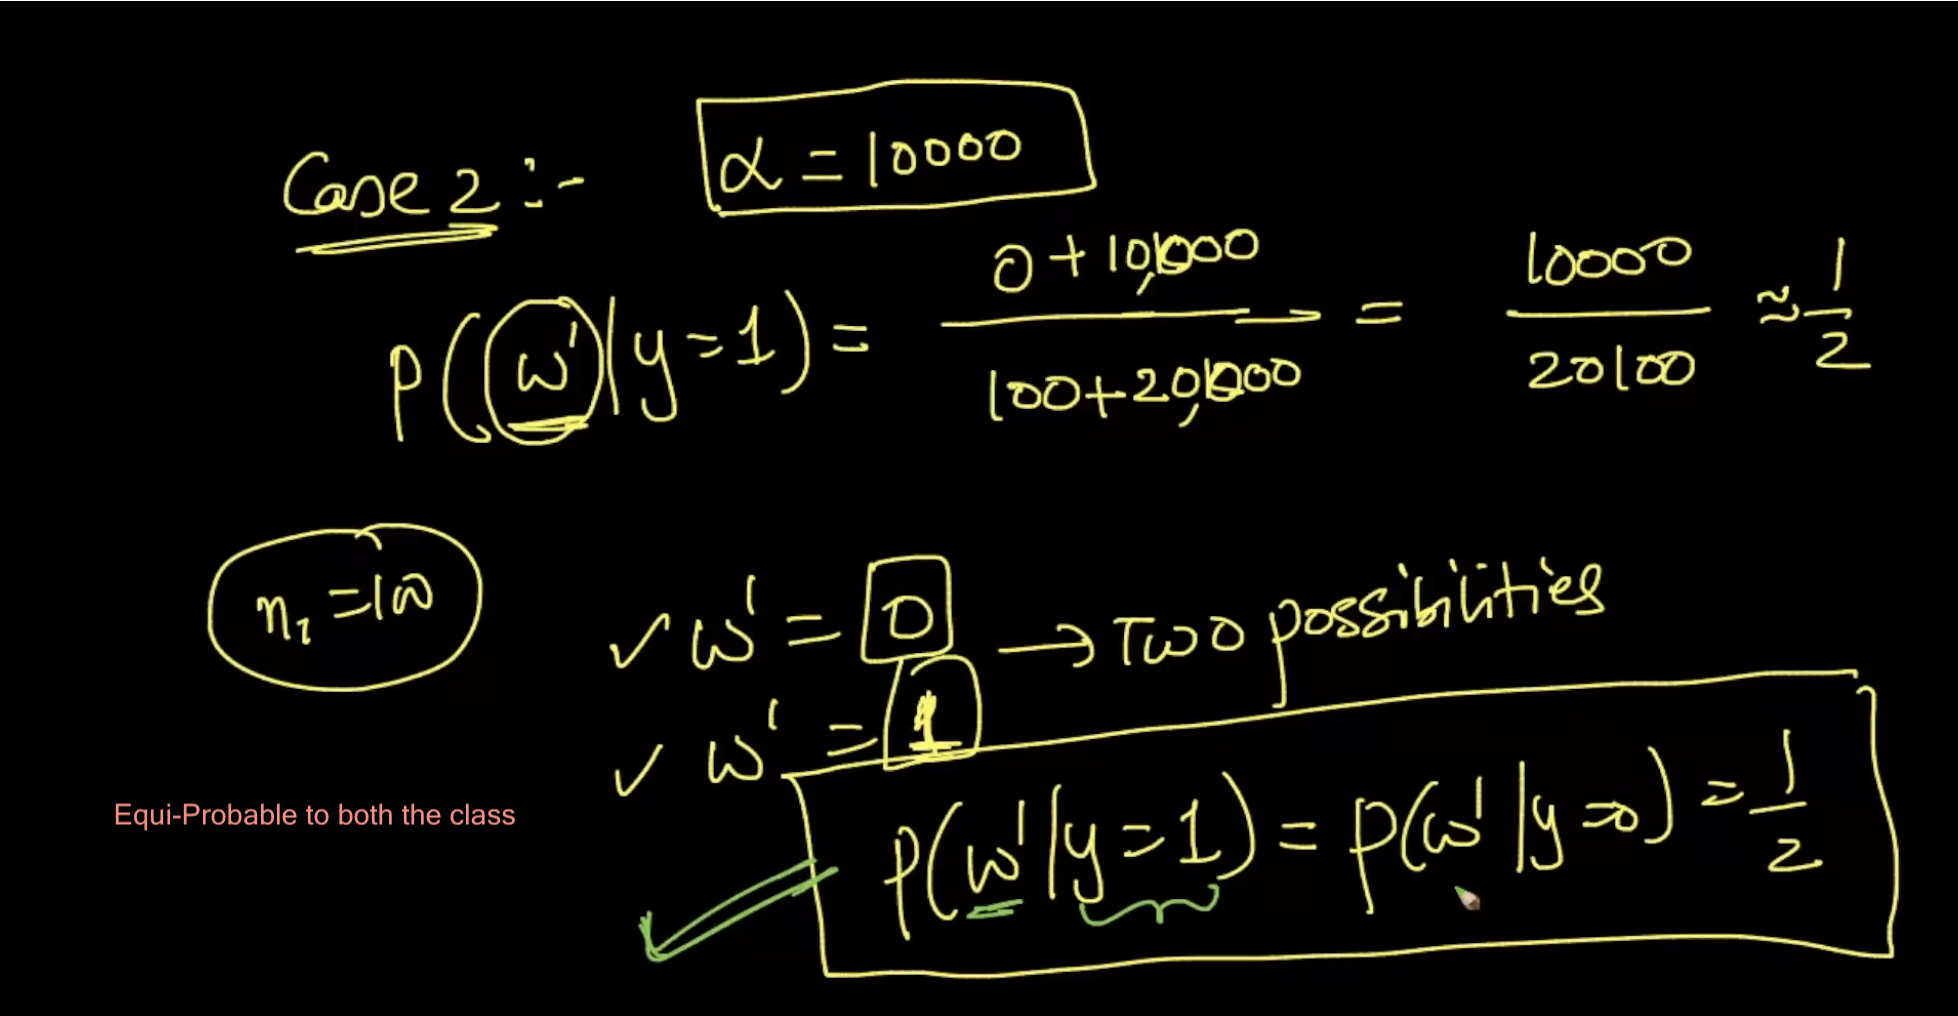 Case 2 :- α = 10000
P(w'|y=1) = 0 + 10,000 / 100 + 20,000 = 10000 / 20100 ≈ 1/2
n₁ = 100
✓ w' = 0 → Two possibilities
✓ w' = 1
Equi-Probable to both the class
P(w'|y=1) = P(w'|y=0) = 1/2